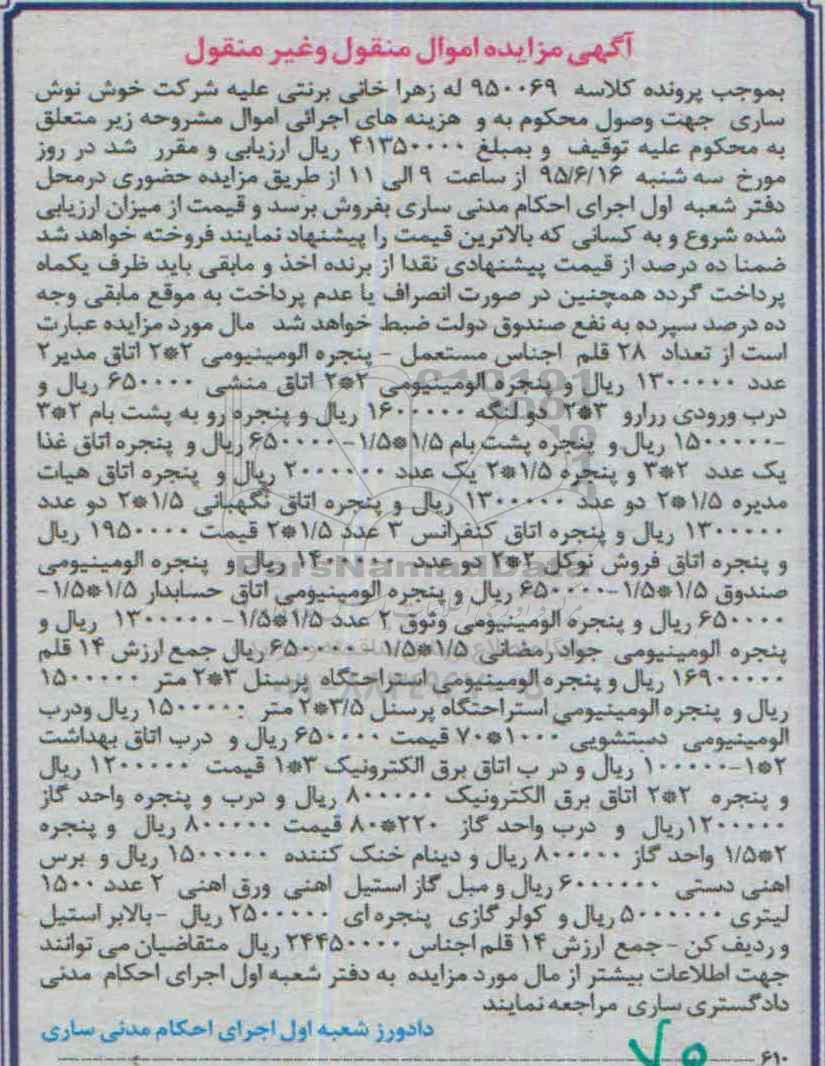 آگهی مزایده اموال منقول وغیر منقول
بموجب پرونده کلاسه ۹۵۰۰۶۹ له زهرا خانی برنتی علیه شرکت خوش نوش
ساری جهت وصول محکوم به و هزینه های اجرائی اموال مشروحه زیر متعلق
به محکوم علیه توقیف و بمبلغ ۴۱۳۵۰۰۰۰ ریال ارزیابی و مقرر شد در روز
مورخ سه شنبه ۹۵/۶/۱۶ از ساعت ۹ الی ۱۱ از طریق مزایده حضوری درمحل
دفتر شعبه اول اجرای احکام مدنی ساری بفروش برسد و قیمت از میزان ارزیابی
شده شروع و به کسانی که بالاترین قیمت را پیشنهاد نمایند فروخته خواهد شد
ضمنا ده درصد از قیمت پیشنهادی نقدا از برنده اخذ و مابقی باید ظرف یکماه
پرداخت گردد همچنین در صورت انصراف یا عدم پرداخت به موقع مابقی وجه
ده درصد سپرده به نفع صندوق دولت ضبط خواهد شد مال مورد مزایده عبارت
است از تعداد ۲۸ قلم اجناس مستعمل - پنجره الومینیومی ۲*۲ اتاق مدیر ۲
عدد ۱۳۰۰۰۰۰ ریال و پنجره الومینیومی ۲*۲ اتاق منشی ۶۵۰۰۰۰ ریال و
درب ورودی ررارو ۳*۲ دو لنگه ۱۶۰۰۰۰۰ ریال و پنجره رو به پشت بام ۲*۳
-۱۵۰۰۰۰۰ ریال و پنجره پشت بام ۱/۵*۱/۵-۶۵۰۰۰۰ ریال و پنجره اتاق غذا
یک عدد ۲*۳ و پنجره ۱/۵*۲ یک عدد ۲۰۰۰۰۰۰ ریال و پنجره اتاق هیات
مدیره ۱/۵*۲ دو عدد ۱۳۰۰۰۰۰ ریال و پنجره اتاق نگهبانی ۱/۵*۲ دو عدد
۱۳۰۰۰۰۰ ریال و پنجره اتاق کنفرانس ۳ عدد ۱/۵*۲ قیمت ۱۹۵۰۰۰۰ ریال
و پنجره اتاق فروش نوکل ۲*۲ دو عدد ۱۴۰۰۰۰۰ ریال و پنجره الومینیومی
صندوق ۱/۵*۱/۵-۶۵۰۰۰۰ ریال و پنجره الومینیومی اتاق حسابدار ۱/۵*۱/۵-
۶۵۰۰۰۰ ریال و پنجره الومینیومی وثوق ۲ عدد ۱/۵*۱/۵-۱۳۰۰۰۰۰ ریال و
پنجره الومینیومی جواد رمضانی ۱/۵*۱/۵ ۶۵۰۰۰۰ ریال جمع ارزش ۱۴ قلم
۱۶۹۰۰۰۰۰ ریال و پنجره الومینیومی استراحتگاه پرسنل ۳*۲ متر ۱۵۰۰۰۰۰
ریال و پنجره الومینیومی استراحتگاه پرسنل ۳/۵*۲ متر ۱۵۰۰۰۰۰ ریال ودرب
الومینیومی دستشویی ۱۰۰۰*۷۰ قیمت ۶۵۰۰۰۰ ریال و درب اتاق بهداشت
۲*۱-۱۰۰۰۰۰۰ ریال و در ب اتاق برق الکترونیک ۳*۱ قیمت ۱۲۰۰۰۰۰ ریال
و پنجره ۲*۲ اتاق برق الکترونیک ۸۰۰۰۰۰ ریال و درب و پنجره واحد گاز
۱۲۰۰۰۰۰ریال و درب واحد گاز ۲۲۰*۸۰ قیمت ۸۰۰۰۰۰ ریال و پنجره
۲*۱/۵ واحد گاز ۸۰۰۰۰۰ ریال و دینام خنک کننده ۱۵۰۰۰۰۰ ریال و برس
اهنی دستی ۶۰۰۰۰۰۰ ریال و مبل گاز استیل اهنی ورق اهنی ۲ عدد ۱۵۰۰
لیتری ۵۰۰۰۰۰۰ ریال و کولر گازی پنجره ای ۲۵۰۰۰۰۰ ریال -بالابر استیل
و ردیف کن - جمع ارزش ۱۴ قلم اجناس ۲۴۴۵۰۰۰۰ ریال متقاضیان می توانند
جهت اطلاعات بیشتر از مال مورد مزایده به دفتر شعبه اول اجرای احکام مدنی
دادگستری ساری مراجعه نمایند
دادورز شعبه اول اجرای احکام مدنی ساری
۶۱۰
۷۵
ParsNamadData